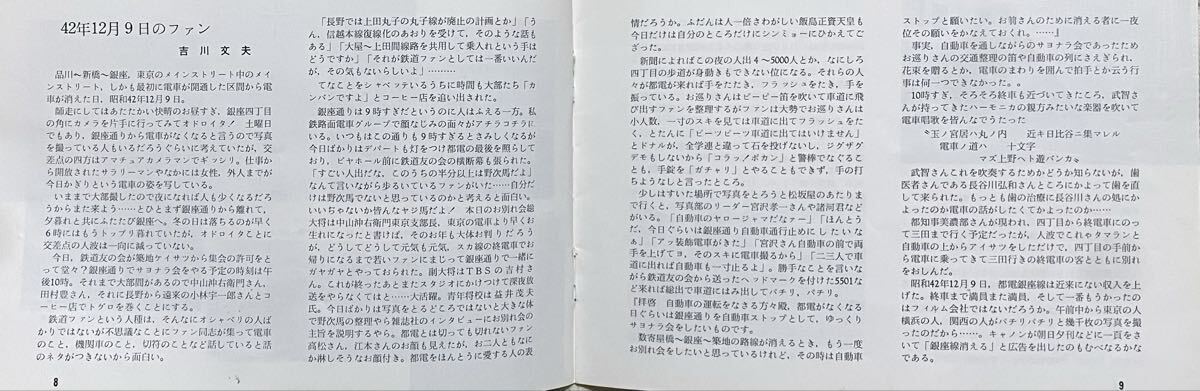 42年12月9日のファン
吉川文夫
品川〜新橋〜銀座，東京のメインストリート中のメイ
ンストリート，しかも最初に電車が開通した区間から電
車が消えた日，昭和42年12月9日。
師走にしてはあたたかい快晴のお昼すぎ，銀座四丁目
の角にカメラを片手に行ってみてオドロイタ。土曜日
でもあり，銀座から電車がなくなると言うので写真
を撮っている人もいるだろうぐらいに考えていたが，交
差点の四方はアマチュアカメラマンでギッシリ。仕事か
ら開放されたサラリーマンやなかには女性，外人までが
今日かぎりという電車の姿を写している。
いままで大部撮したので夜になれば人も少くなるだろ
うからまた来よう……とひとまず銀座通りから離れて，
夕暮れと共にふたたび銀座へ。冬の日は落ちるのが早く
6時にはもうトップリ暮れていたが，オドロイタことに
交差点の人波は一向に減っていない。
今日，鉄道友の会が築地ケイサツから集会の許可をと
って堂々？銀座通りでサヨナラ会をやる予定の時刻は午
後10時。それまで大部間があるので中山沖右衛門さん，
田村豊さん，それに長野から遠来の小林宇一郎さんとコ
ーヒー店でトグロを巻くことにする。
鉄道ファンという人種は，そんなにオシャベリの人ば
かりではないが不思議なことにファン同志が集って電車
のこと，機関車のこと，切符のことなど話していると話
のネタがつきないから面白い。
「長野では上田丸子の丸子線が廃止の計画とか」「う
ん，信越本線複線化のあおりを受けて，そのような話も
ある」「大屋〜上田間線路を共用して乗入れという手は
どうですか」「それが鉄道ファンとしては一番いいんだ
が，その気もないらしいよ」………
てなことをシャベッテいるうちに時間も大部たち「カ
ンバンですよ」とコーヒー店を追い出された。
銀座通りは9時すぎだというのに人はふえる一方。私
鉄路面電車グループで顔なじみの面々がアチラコチラに
いる。いつもはこの通りも9時すぎるとさみしくなるが
今日ばかりはデパートも灯をつけて都電の最後を照らして
おり，ビヤホール前に鉄道友の会の横断幕も張られた。
「すごい人出だな，このうちの半分以上は野次馬だよ」
なんて言いながら歩いているファンがいた……自分だ
けは野次馬でないと思っているのかと考えると面白い。
いいぢゃないか皆んなヤジ馬だよ♪ 本日のお別れ会総
大将は中山沖右衛門東京支部長，東京の電車より早くお
生れになったと書けば，そのお年も大体お判りだろう
が，どうしてどうして元気も元気，スカ線の終電車でお
帰りになるまで若いファンにまじって銀座通りで一緒に
ガヤガヤとやっておられた。副大将はTBSの吉村さ
ん。これが終ったあとまたスタジオにかけつけて深夜放
送をやらなくてはと……大活躍。青年将校は益井茂夫
氏。今日ばかりは写真をとるどころではないと大きな体
で野次馬の整理やら雑誌社のインタビューにお別れ会の
主旨を説明するやら。都電とは切っても切れないファン
高松さん，江本さんのお顔も見えたが，お二人ともなに
か淋しそうなお顔付き。都電をほんとうに愛する人の表
8
情だろうか。ふだんは人一倍さわがしい飯島正資天皇も
今日だけは自分のところだけにシンミョーにひかえてご
ざった。
新聞によればこの夜の人出4〜5000人とか，なにしろ
四丁目の歩道が身動きもできない位になる。それらの人
々が都電が来れば手をたたき，フラッシュをたき，手を
振っている。お巡りさんはピーピー笛を吹いて車道に飛
び出すファンを整理するがファンは大勢でお巡りさんは
小人数，一寸のスキを見ては車道に出てフラッシュをた
く，とたんに「ピーッピーッ車道に出てはいけません」
とドナルが，全学連と違って石を投げないし，ジグザグ
デモもしないから「コラッ♪ボカン」と警棒でなぐるこ
とも，手錠を「ガチャリ」とやることもできず，手の打
ちようなしと言ったところ。
少しはすいた場所で写真をとろうと松坂屋のあたりま
で行くと，写真部のリーダー宮沢孝一さんや諸河君など
がいる。「自動車のヤロージャマだなァー」「ほんとう
だ，今日ぐらいは銀座通り自動車通行止めにしたいな
ぁ」「アッ装飾電車がきた」「宮沢さん自動車の前で両
手を上げてヨ，そのスキに電車撮るから」「二三人で車
道に出れば自動車も一寸止るよ」。勝手なことを言いな
がら鉄道友の会から送ったヘッドマークを付けた5501な
ど来れば総出で車道にはみ出してパチリ，パチリ。
『拝啓 自動車の運転をなさる方々殿，都電がなくなる
日ぐらいは銀座通りを自動車ストップとして，ゆっくり
サヨナラ会をしたいものです。
数寄屋橋〜銀座〜築地の路線が消えるとき，もう一度
お別れ会をしたいと思っているけれど，その時は自動車
ストップと願いたい。お前さんのために消える者に一夜
位その願いをかなえておくれ。……』
事実，自動車を通しながらのサヨナラ会であったため
お巡りさんの交通整理の笛や自動車の列にさえぎられ，
花束を贈るとか，電車のまわりを囲んで拍手とか云う行
事は何一つできなかった。
10時すぎ，そろそろ終車も近づいてきたころ，武智さ
んが持ってきたハーモニカの親方みたいな楽器を吹いて
電車唱歌を皆んなでうたった
〽玉ノ宮居ハ丸ノ内 近キ日比谷ニ集マレル
電車ノ道ハ 十文字
マズ上野ヘト遊バンカ〽
武智さんこれを吹奏するためかどうか知らないが，歯
医者さんである長谷川弘和さんところにかよって歯を直
して来られた。もっとも歯の治療に長谷川さんの処にか
よったのか電車の話がしたくてかよったのか……
都知事美濃部さんが現われ，四丁目から終電車にのっ
て三田まで行く予定だったが，人波でこれゃタマランと
自動車の上からアイサツをしただけで，四丁目の手前か
ら電車に乗ってきて三田行きの終電車の客とともに別れ
をおしんだ。
昭和42年12月9日，都電銀座線は近来にない収入を上
げた。終車まで満員また満員，そして一番もうかったの
はフィルム会社ではないだろうか。午前中から東京の人
横浜の人，関西の人がパチリパチリと幾千枚の写真を撮
ったのだから……。キャノンが朝日夕刊などに一頁をさ
いて「銀座線消える」と広告を出したのもむべなるかな
である。
9